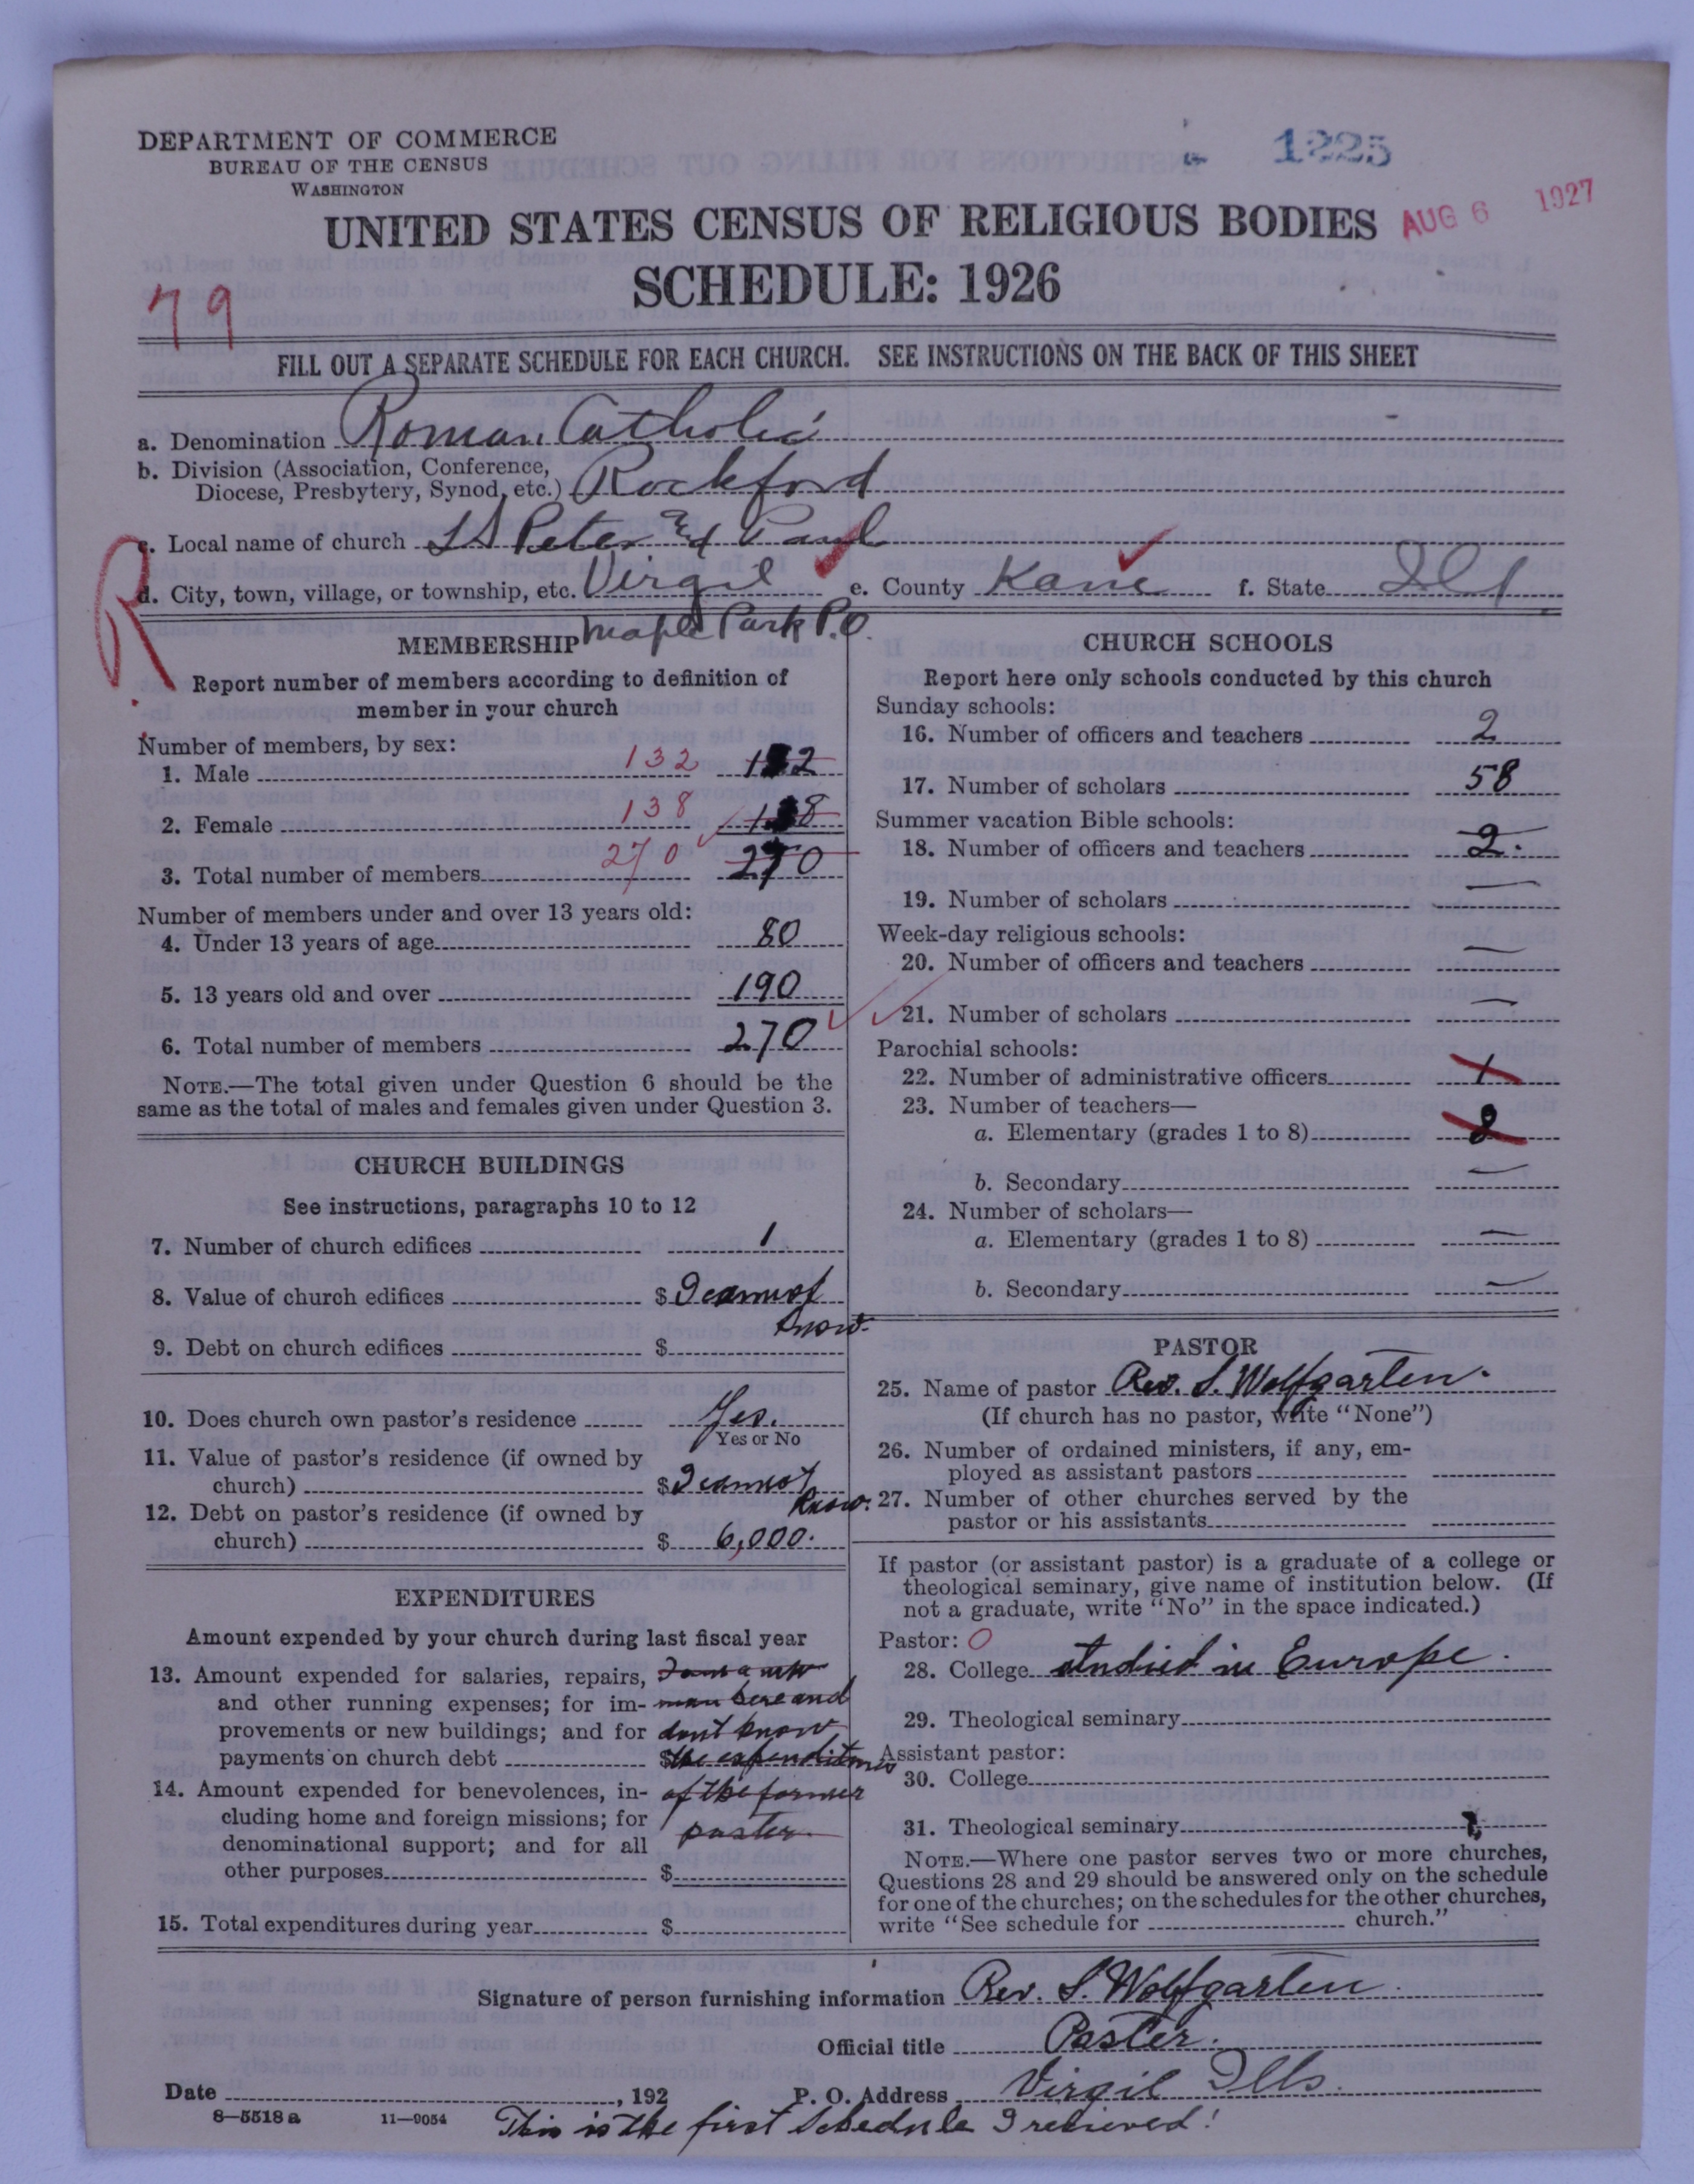 DEPARTMENT OF COMMERCE
BUREAU OF THE CENSUS
WASHINGTON
1225
AUG 6 1927
UNITED STATES CENSUS OF RELIGIOUS BODIES
SCHEDULE: 1926
79
FILL OUT A SEPARATE SCHEDULE FOR EACH CHURCH. SEE INSTRUCTIONS ON THE BACK OF THIS SHEET
a. Denomination Roman Catholic
b. Division (Association, Conference,
Diocese, Presbytery, Synod, etc.) Rockford
R
c. Local name of church SS Peter and Paul
d. City, town, village, or township, etc. Virgil e. County Kane f. State Ill.
Maple Park P.O.
MEMBERSHIP
Report number of members according to definition of
member in your church
Number of members, by sex:
1. Male 132 132
2. Female 138 138
3. Total number of members 270 270
Number of members under and over 13 years old:
4. Under 13 years of age 80
5. 13 years old and over 190
6. Total number of members 270
NOTE.—The total given under Question 6 should be the
same as the total of males and females given under Question 3.
CHURCH BUILDINGS
See instructions, paragraphs 10 to 12
7. Number of church edifices 1
8. Value of church edifices $ I cannot
know.
9. Debt on church edifices $
10. Does church own pastor's residence Yes.
Yes or No
11. Value of pastor's residence (if owned by
church) $ I cannot
know.
12. Debt on pastor's residence (if owned by
church) $ 6,000.
EXPENDITURES
Amount expended by your church during last fiscal year
13. Amount expended for salaries, repairs, I am a new
and other running expenses; for im- man here and
provements or new buildings; and for dont know
payments on church debt $ the expenditures
14. Amount expended for benevolences, in- of the former
cluding home and foreign missions; for paster.
denominational support; and for all
other purposes $
15. Total expenditures during year $
CHURCH SCHOOLS
Report here only schools conducted by this church
Sunday schools:
16. Number of officers and teachers 2
17. Number of scholars 58
Summer vacation Bible schools:
18. Number of officers and teachers 2.
19. Number of scholars —
Week-day religious schools:
20. Number of officers and teachers —
21. Number of scholars —
Parochial schools:
22. Number of administrative officers 1
23. Number of teachers—
a. Elementary (grades 1 to 8) 2
b. Secondary —
24. Number of scholars—
a. Elementary (grades 1 to 8) —
b. Secondary —
PASTOR
25. Name of pastor Rev. S. Wolfgarten.
(If church has no pastor, write "None")
26. Number of ordained ministers, if any, em-
ployed as assistant pastors
27. Number of other churches served by the
pastor or his assistants
If pastor (or assistant pastor) is a graduate of a college or
theological seminary, give name of institution below. (If
not a graduate, write "No" in the space indicated.)
Pastor: 0
28. College studied in Europe.
29. Theological seminary
Assistant pastor:
30. College
31. Theological seminary
NOTE.—Where one pastor serves two or more churches,
Questions 28 and 29 should be answered only on the schedule
for one of the churches; on the schedules for the other churches,
write "See schedule for church."
Signature of person furnishing information Rev. S. Wolfgarten.
Official title Paster.
Date , 192 P. O. Address Virgil Ills.
8—5518 a 11—9054
This is the first schedule I recieved!